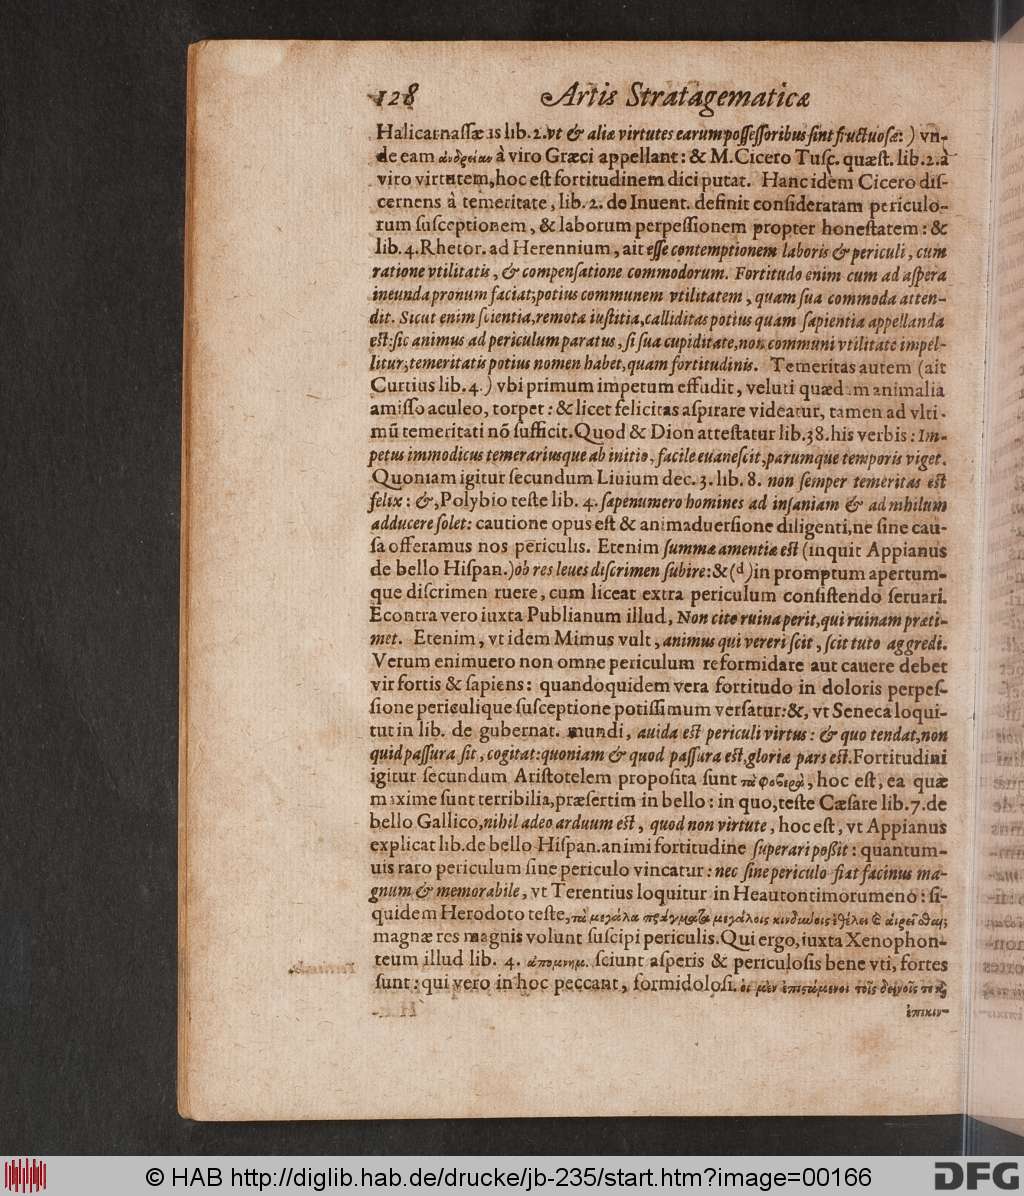 128 Artis Stratagematicæ
Halicarnassæus lib. 2. vt & aliæ virtutes earum possessoribus sint fructuosæ: ) vn-
de eam ἀνδρείαν à viro Græci appellant: & M. Cicero Tusc. quæst. lib. 2. à
viro virtutem, hoc est fortitudinem dici putat. Hanc idem Cicero dis-
cernens à temeritate, lib. 2. de Inuent. definit consideratam periculo-
rum susceptionem, & laborum perpessionem propter honestatem: &
lib. 4. Rhetor. ad Herennium, ait esse contemptionem laboris & periculi, cum
ratione vtilitatis, & compensatione commodorum. Fortitudo enim cum ad aspera
ineunda pronum faciat; potius communem vtilitatem, quam sua commoda atten-
dit. Sicut enim scientia, remota iustitia, calliditas potius quam sapientia appellanda
est: sic animus ad periculum paratus, si sua cupiditate, non communi vtilitate impel-
litur, temeritatis potius nomen habet, quam fortitudinis. Temeritas autem (ait
Curtius lib. 4.) vbi primum impetum effudit, veluti quædam animalia
amisso aculeo, torpet: & licet felicitas aspirare videatur, tamen ad vlti-
mũ temeritati nõ sufficit. Quod & Dion attestatur lib. 38. his verbis: Im-
petus immodicus temerariusque ab initio, facile euanescit, parumque temporis viget.
Quoniam igitur secundum Liuium dec. 3. lib. 8. non semper temeritas est
felix: &, Polybio teste lib. 4. sæpenumero homines ad insaniam & ad nihilum
adducere solet: cautione opus est & animaduersione diligenti, ne sine cau-
sa offeramus nos periculis. Etenim summæ amentiæ est (inquit Appianus
de bello Hispan.) ob res leues discrimen subire: & (d) in promptum apertum-
que discrimen ruere, cum liceat extra periculum consistendo seruari.
Econtra vero iuxta Publianum illud, Non cito ruina perit, qui ruinam præti-
met. Etenim, vt idem Mimus vult, animus qui vereri scit, scit tuto aggredi.
Verum enimuero non omne periculum reformidare aut cauere debet
vir fortis & sapiens: quandoquidem vera fortitudo in doloris perpes-
sione periculique susceptione potissimum versatur: &, vt Seneca loqui-
tut in lib. de gubernat. mundi, auida est periculi virtus: & quo tendat, non
quid passura sit, cogitat: quoniam & quod passura est, gloriæ pars est. Fortitudini
igitur secundum Aristotelem proposita sunt τὰ φοβερὰ, hoc est, ea quæ
maxime sunt terribilia, præsertim in bello: in quo, teste Cæsare lib. 7. de
bello Gallico, nihil adeo arduum est, quod non virtute, hoc est, vt Appianus
explicat lib. de bello Hispan. animi fortitudine superari poßit: quantum-
uis raro periculum sine periculo vincatur: nec sine periculo fiat facinus ma-
gnum & memorabile, vt Terentius loquitur in Heautontimorumeno: si-
quidem Herodoto teste, τὰ μεγάλα πράγματα μεγάλοις κινδύνοις ἐθέλει αἱρεῖσθαι;
magnæ res magnis volunt suscipi periculis. Qui ergo, iuxta Xenophon-
teum illud lib. 4. ἀπομνημ. sciunt asperis & periculosis bene vti, fortes
sunt: qui vero in hoc peccant, formidolosi. οἱ μὲν ἐπιστάμενοι τοῖς δεινοῖς τε καὶ
ἐπικιν-
© HAB http://diglib.hab.de/drucke/jb-235/start.htm?image=00166
DFG